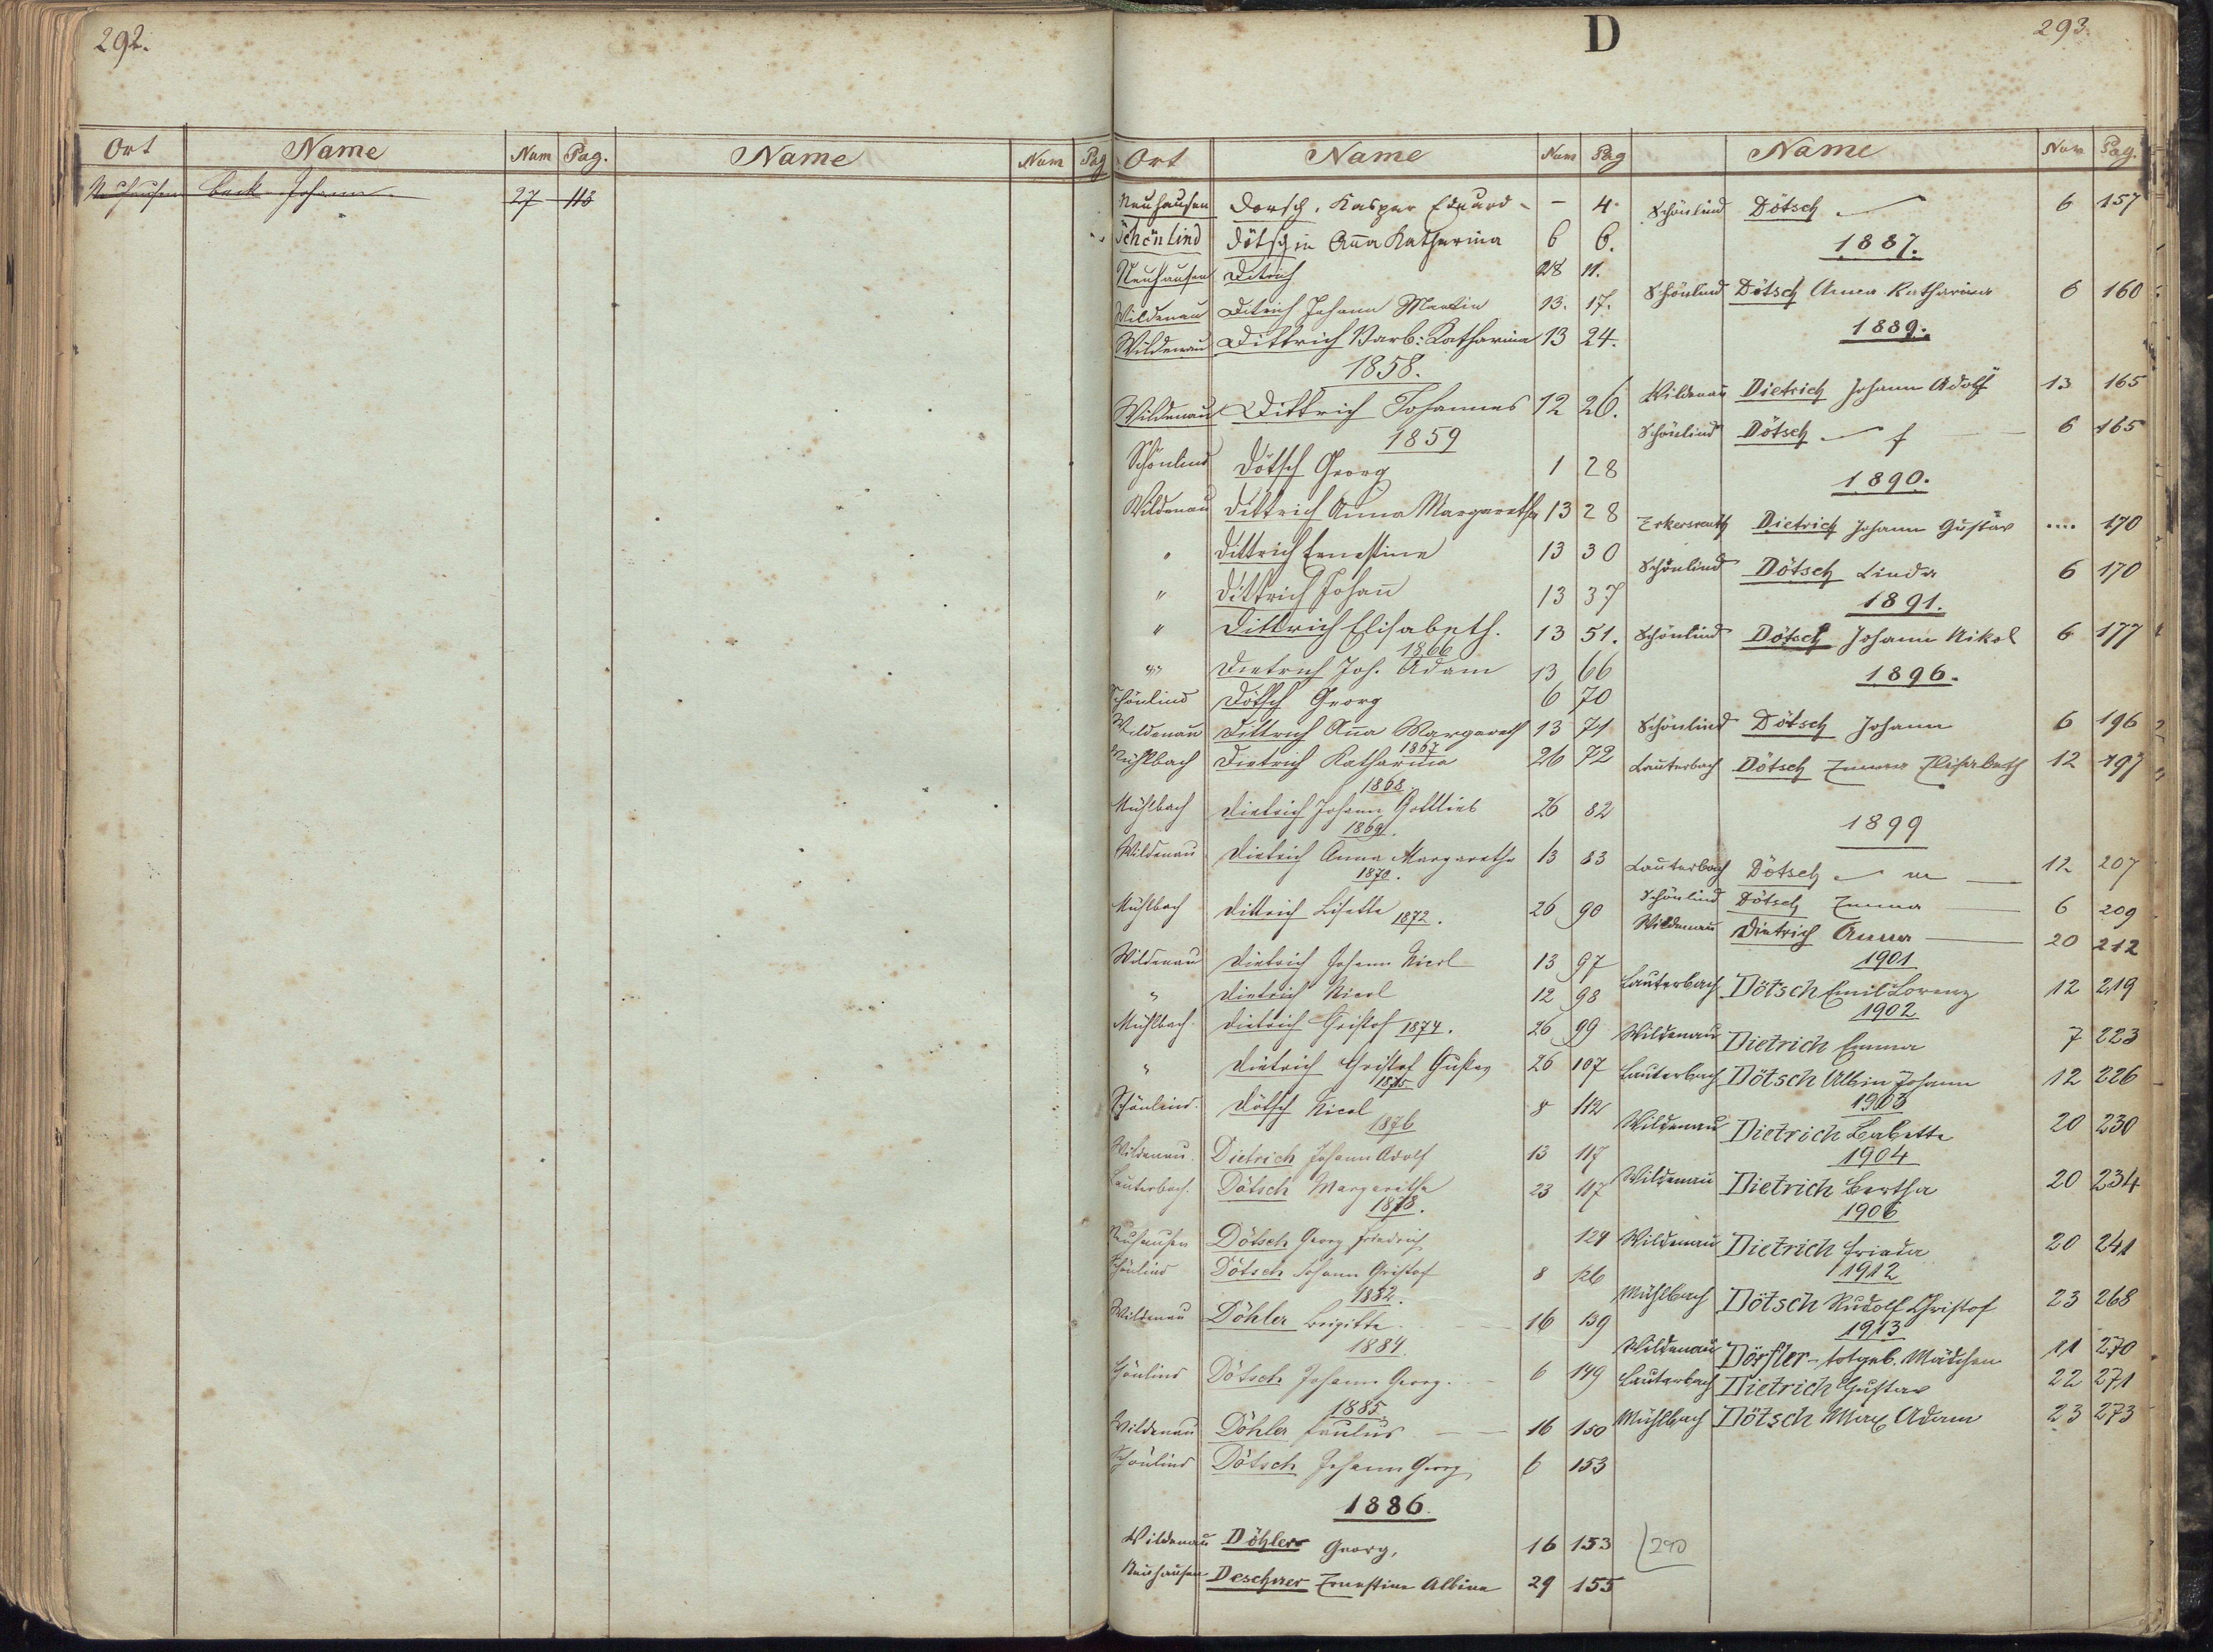 292.
Ort Name Num Pag. Name Num Pag
Neuhausen Beck Johann 27 113
D
293.
Ort Name Num Pag
Neuhausen Dorsch, Kaspar Eduard - - 4.
Schönlind Dötsch in Aña Katharina 6 6.
Neuhausen Ditrich 28 11.
Wildenau Ditrich Johann Martin 13. 17.
Wildenau Dittrich Barb: Katharina 13 24.
1858.
Wildenau Dittrich Johannes 12 26.
1859
Schönlind Dötsch Georg 1 28
Wildenau Dittrich Anna Margaretha 13 28
" Dittrich Ernestine 13 30
" Dittrich Johañ 13 37
" Dittrich Elisabeth. 13 51.
1866
" Dietrich Joh. Adam 13 66
Schönlind Dötsch Georg 6 70
Wildenau Dittrich Aña Margareth 13 71
1867
Mühlbach Dietrich Katharina 26 72
1868.
Mühlbach Dietrich Johann Gottlieb 26 82
1869.
Wildenau Dietrich Anna Margaretha 13 83
1870.
Mühlbach Dittrich Lisette 26 90
1872.
Wildenau Dietrich Johann Nicol 13 97
" Dietrich Nicol 12 98
Mühlbach Dietrich Christof 1874. 26 99
" Dietrich Christof Gustav 26 107
1875
Schönlind. Dötsch Nicol 8 112
1876
Wildenau. Dietrich Johann Adolf 13 117
Lauterbach. Dötsch Margaretha 23 117
1878.
Neuhausen Dötsch Georg Friedrich 124
Schönlind Dötsch Johann Christof 8 126
1882.
Wildenau Döhler Brigitte 16 139
1884.
Schönlind Dötsch Johann Georg. 6 149
1885
Wildenau Döhler Paulus 16 150
Schönlind Dötsch Johann Georg 6 153
1886.
Wildenau Döhler Georg, 16 153
Neuhausen Descherer Ernestine Albine 29 155
Name Num Pag.
Schönlind Dötsch 6 157
1887.
Schönlind Dötsch Anna Katharina 6 160
1889.
Wildenau Dietrich Johann Adolf 13 165
Schönlind Dötsch 6 165
1890.
Erkersreuth Dietrich Johann Gustav .... 170
Schönlind Dötsch Linda 6 170
1891.
Schönlind Dötsch Johann Nikol 6 177
1896.
Schönlind Dötsch Johann 6 196
Lauterbach Dötsch Emma Elisabeth 12 197
1899
Lauterbach Dötsch 12 207
Schönlind Dötsch Emma 6 209
Wildenau Dietrich Anna 20 212
1901
Lauterbach Dötsch Emil Lorenz 12 219
1902
Wildenau Dietrich Emma 7 223
Lauterbach Dötsch Albin Johann 12 226
1903
Wildenau Dietrich Babette 20 230
1904
Wildenau Dietrich Bertha 20 234
1906
Wildenau Dietrich Frieda 20 241
1912
Mühlbach Dötsch Rudolf Christof 23 268
1913
Wildenau Dörfler - totgeb. Mädchen 11 270
Lauterbach Dietrich Gustav 22 271
Mühlbach Dötsch Max Adam 23 273
290